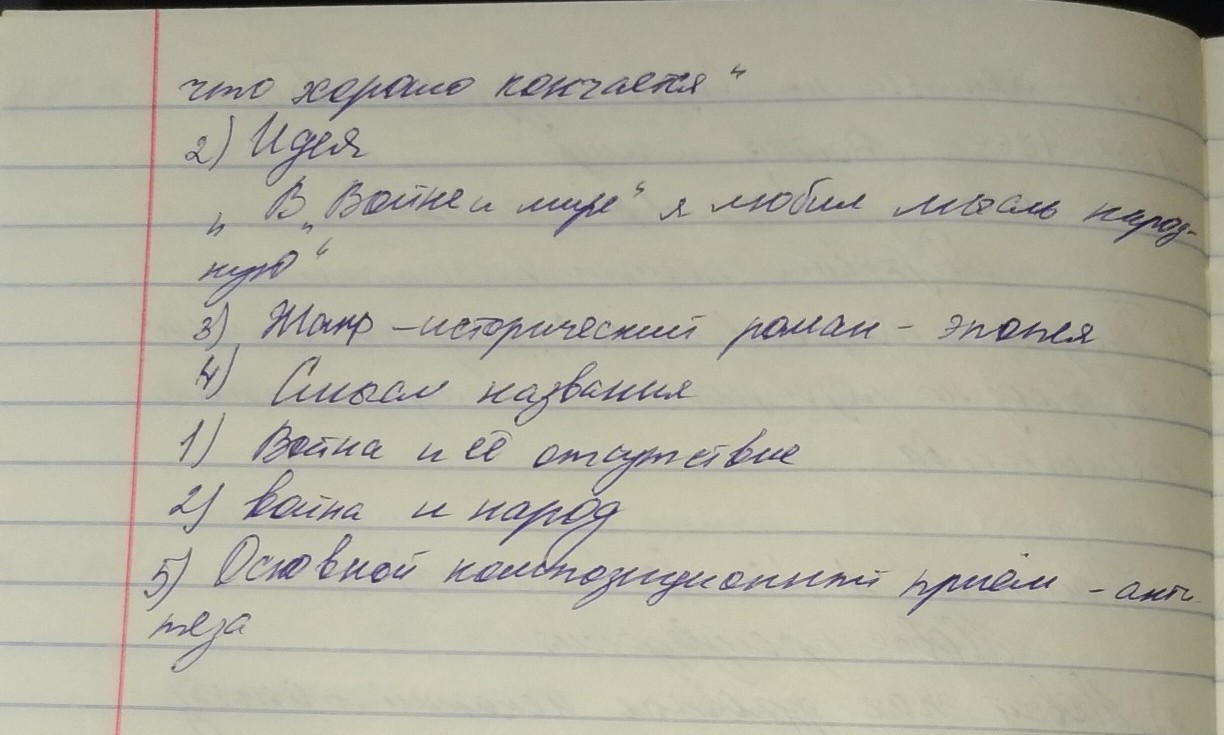 что хорошо кончается“
2) Идея
„ В „Войне и мире“ я любил мысль народ-
ную“
3) Жанр – исторический роман – эпопея
4) Смысл названия
1) Война и её отсутствие
2) Война и народ
5) Основной композиционный приём – анти-
теза